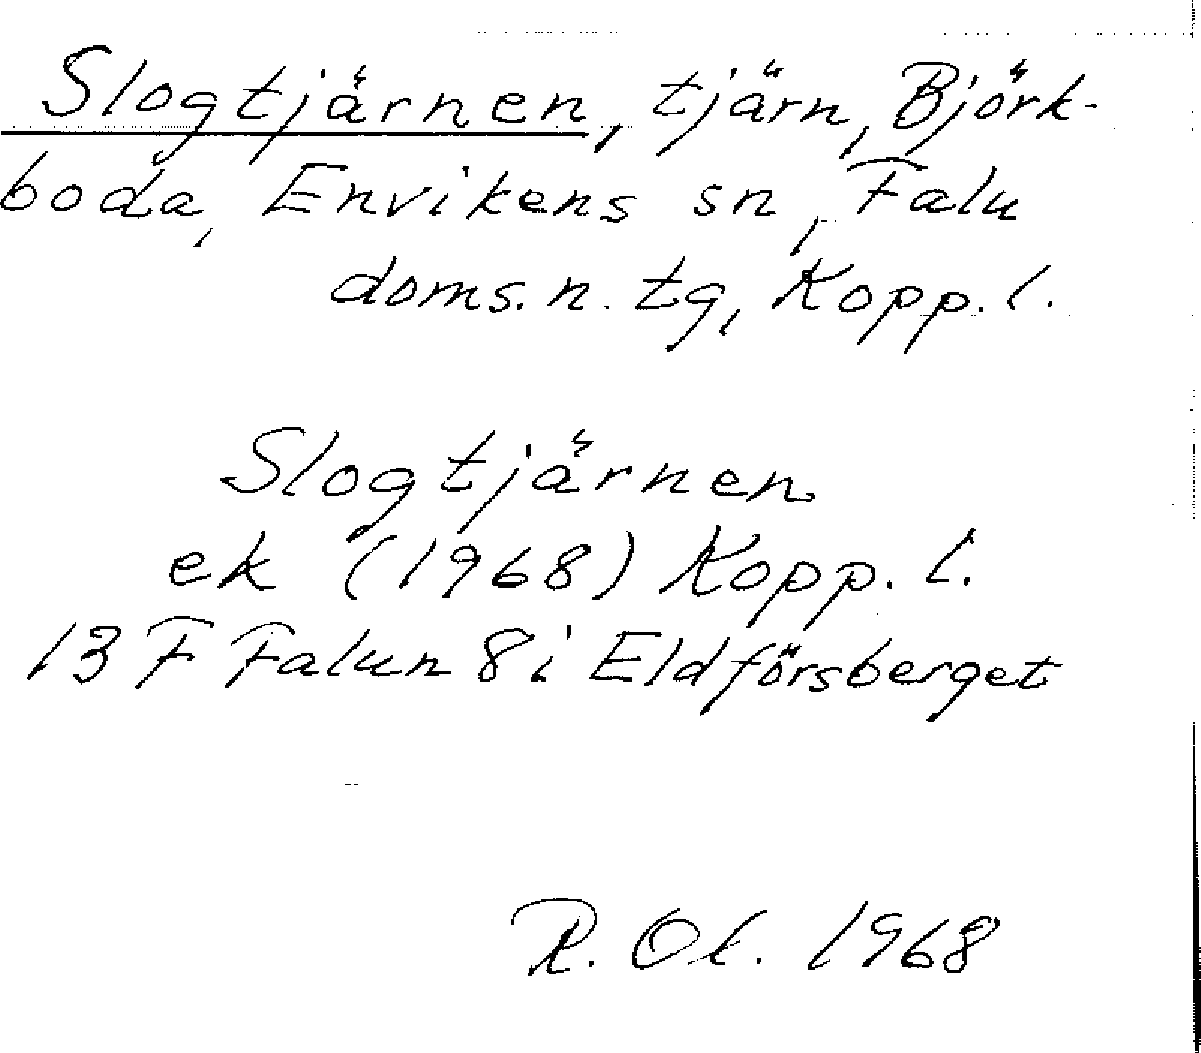 Slogtjärnen, tjärn, Björk-
boda, Envikens sn, Falu
doms.n. tg, Kopp. l.
Slogtjärnen
ek (1968) Kopp. l.
13 F Falun 8 i Eldförsberget
R. Ol. 1968